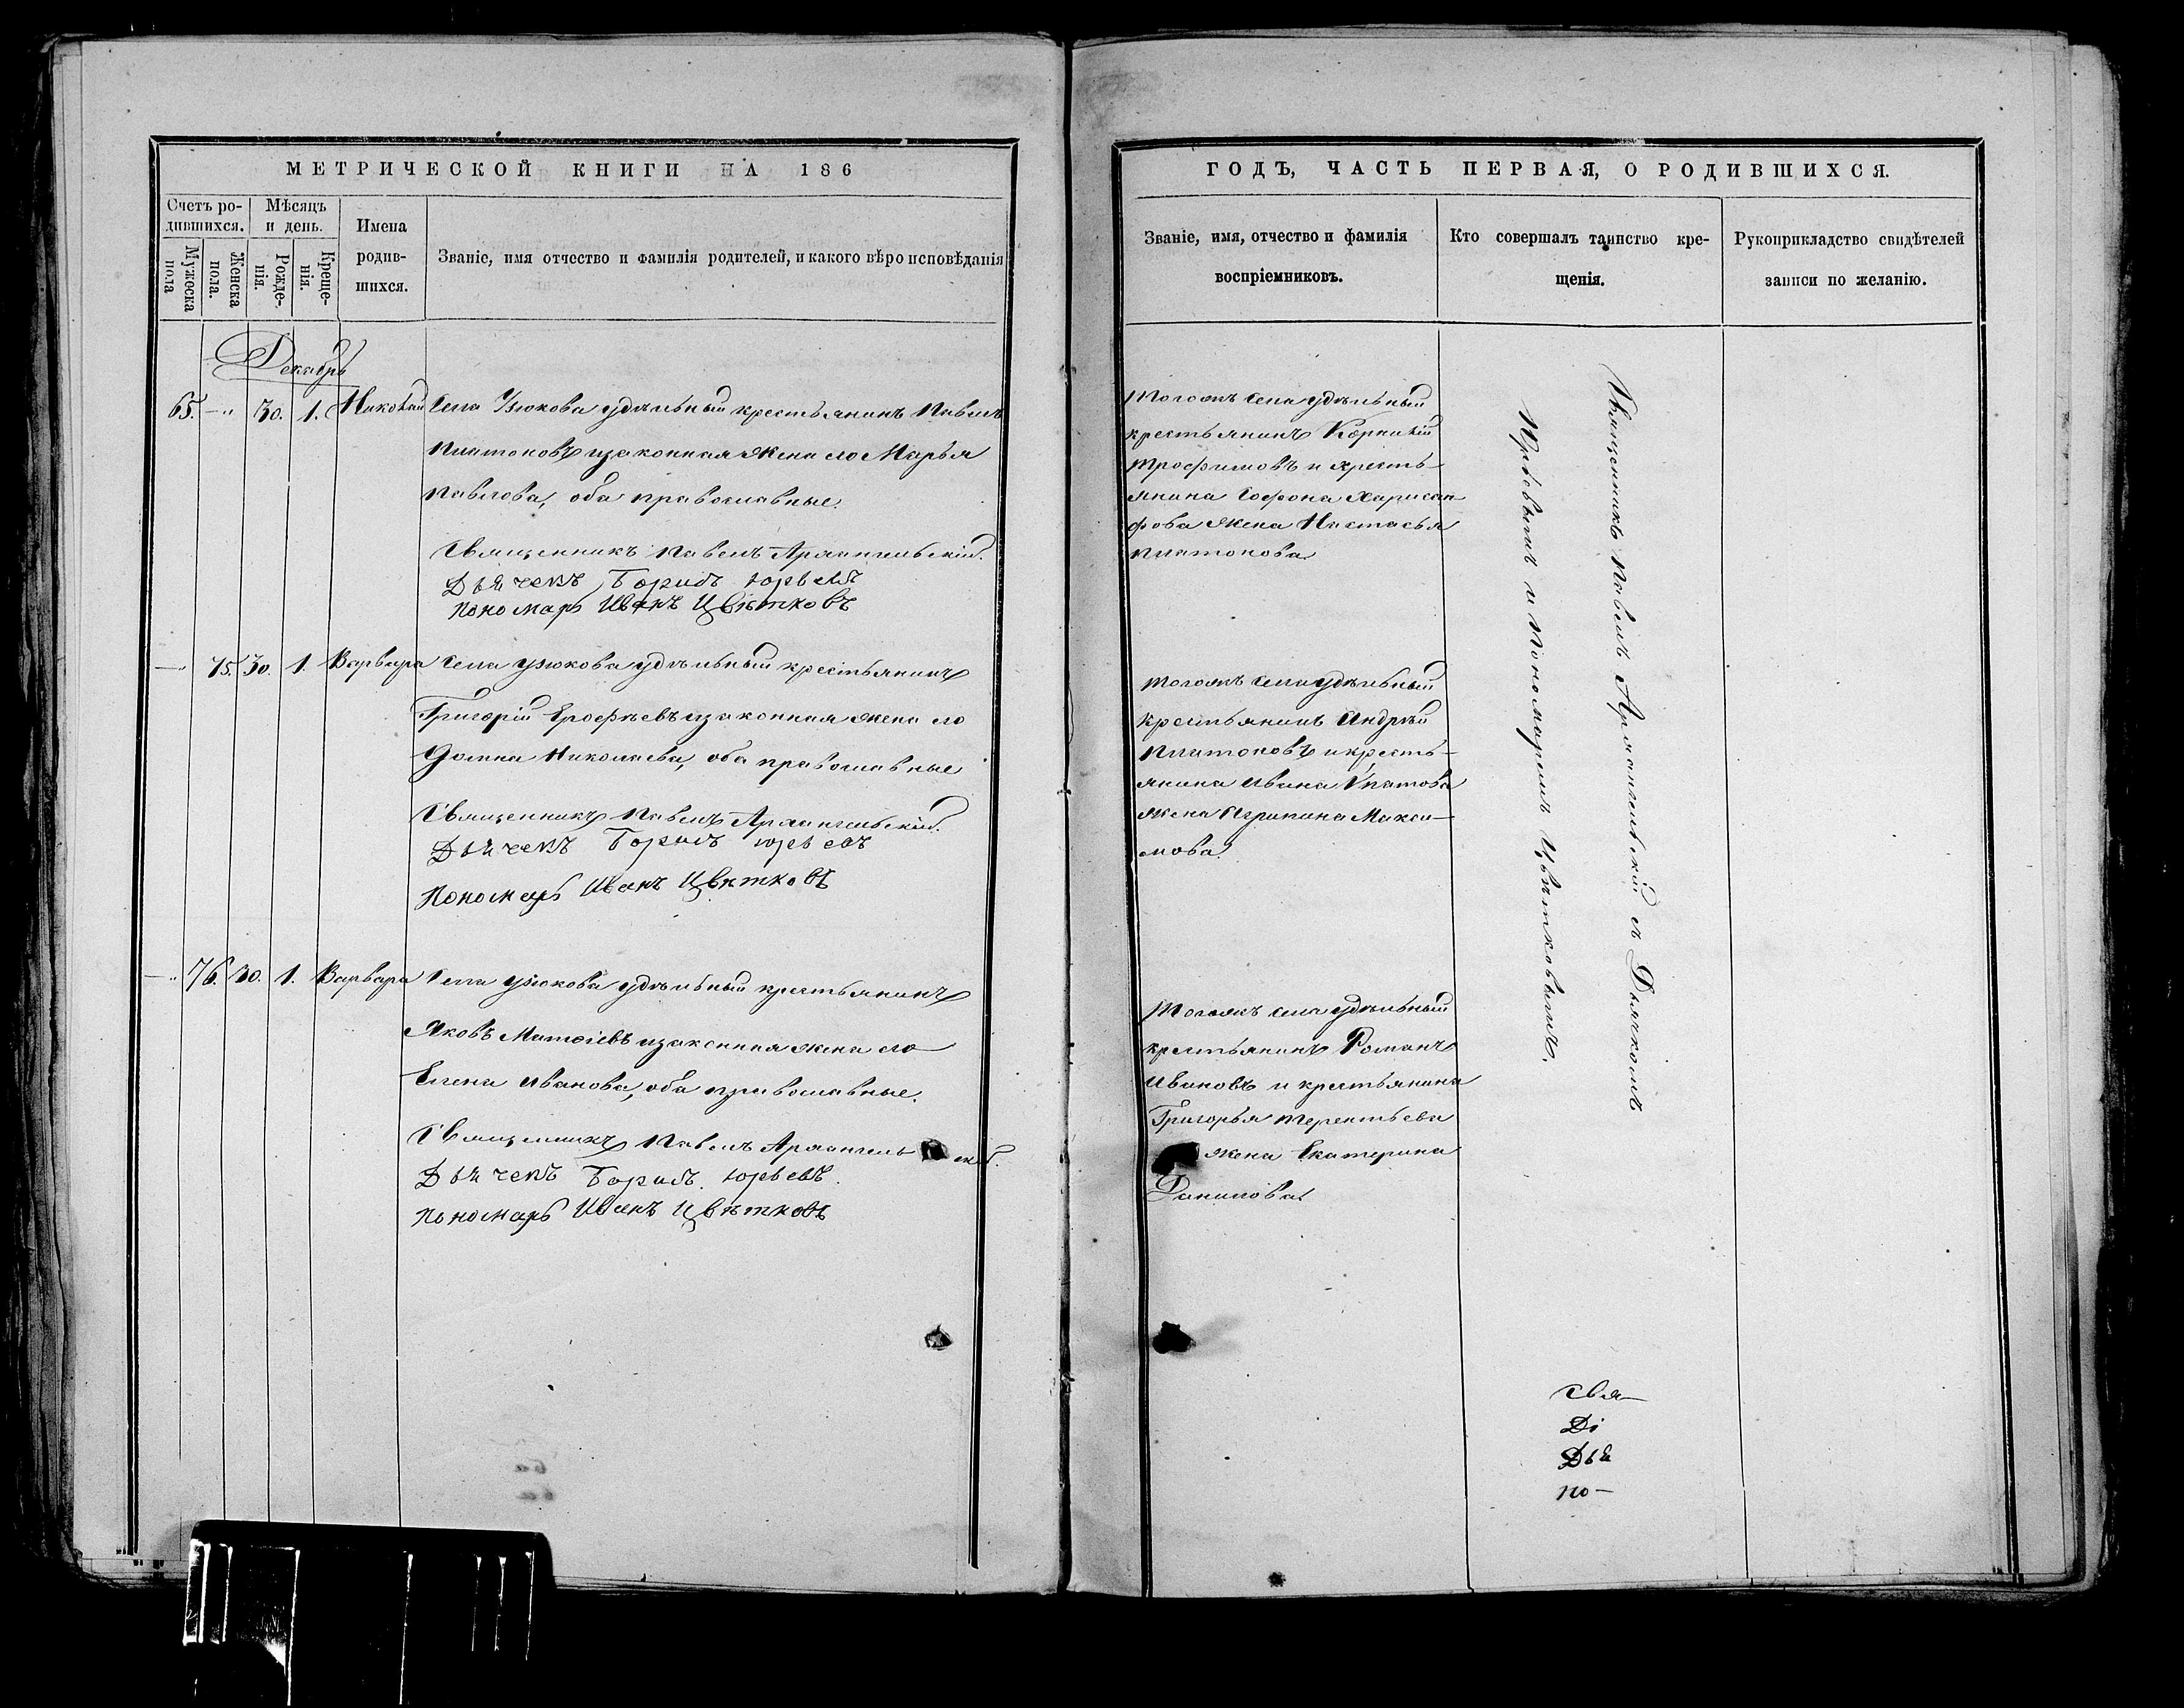 МЕТРИЧЕСКОЙ КНИГИ НА 186
Счетъ ро-
дившихся.
Мѣсяцъ
и день.
Мужеска
пола
Женска
пола.
Рожде-
нія.
Креще-
нія.
Имена
родив-
шихся.
Званіе, имя отчество и фамилія родителей, и какого вѣроисповѣданія
Декабрь
65. —„ 30. 1. Николай Села Узюкова удѣльный крестьянинъ Павелъ
Платоновъ и законная жена его Марья
Павлова, оба православные.
Священникъ Павелъ Архангельскій.
Дьячекъ Борисъ Юрьевъ
Пономарь Иванъ Цвѣтковъ
—„ 75. 30. 1. Варвара Села Узюкова удѣльный крестьянинъ
Григорій Ерофѣевъ и законная жена его
Домна Николаева, оба православные
Священникъ Павелъ Архангельскій.
Дьячекъ Борисъ Юрьевъ
Пономарь Иванъ Цвѣтковъ
—„ 76. 30. 1. Варвара Села Узюкова удѣльный крестьянинъ
Яковъ Матѳіевъ и законная жена его
Елена Иванова, оба православные.
Священникъ Павелъ Архангель скій.
Дьячекъ Борисъ. Юрьевъ.
Пономарь Иванъ Цвѣтковъ
ГОДЪ, ЧАСТЬ ПЕРВАЯ, О РОДИВШИХСЯ.
Званіе, имя, отчество и фамилія
воспріемниковъ.
Кто совершалъ таинство кре-
щенія.
Рукоприкладство свидѣтелей
записи по желанію.
Тогожъ села удѣльный
крестьянинъ Корнилій
Трофимовъ и кресть-
янина Софона Харисан-
фова жена Настасья
Платонова
Тогожъ села удѣльный
крестьянинъ Андрей
Платоновъ и кресть-
янина Ивана Ипатова
жена Агрипина Макси-
мова.
Тогожъ села удѣльный
крестьянинъ Романъ
Ивановъ и крестьянина
Григорья Терентьева
жена Екатерина
Данилова.
Священникъ Павелъ Архангельскій съ Дьячкомъ
Юрьевымъ и Пономаремъ Цвѣтковымъ.
Свя-
Ді
Дья
по-